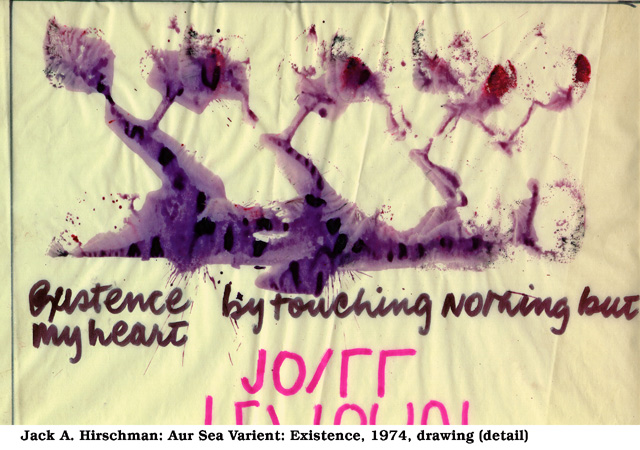 Existence by touching Nothing but
my heart
JO/ΓΓ
Jack A. Hirschman: Aur Sea Varient: Existence, 1974, drawing (detail)